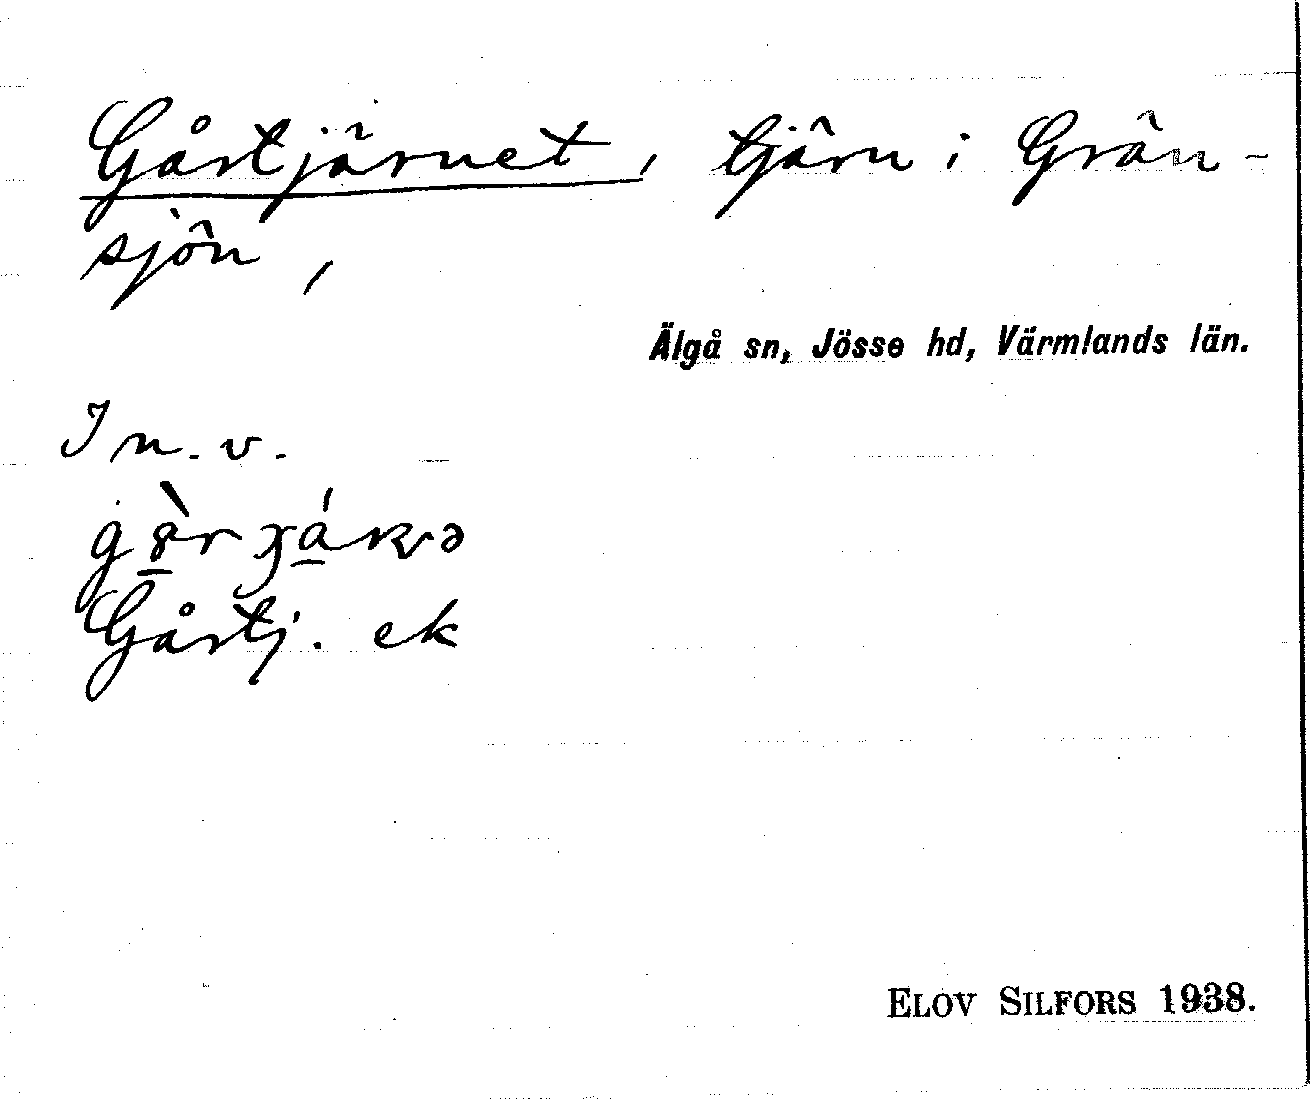 Gårtjärnet, tjärn i Grän-
sjön,
Älgå sn, Jösse hd, Värmlands län.
In.v.
Gårtj. ek
ELOV SILFORS 1938.